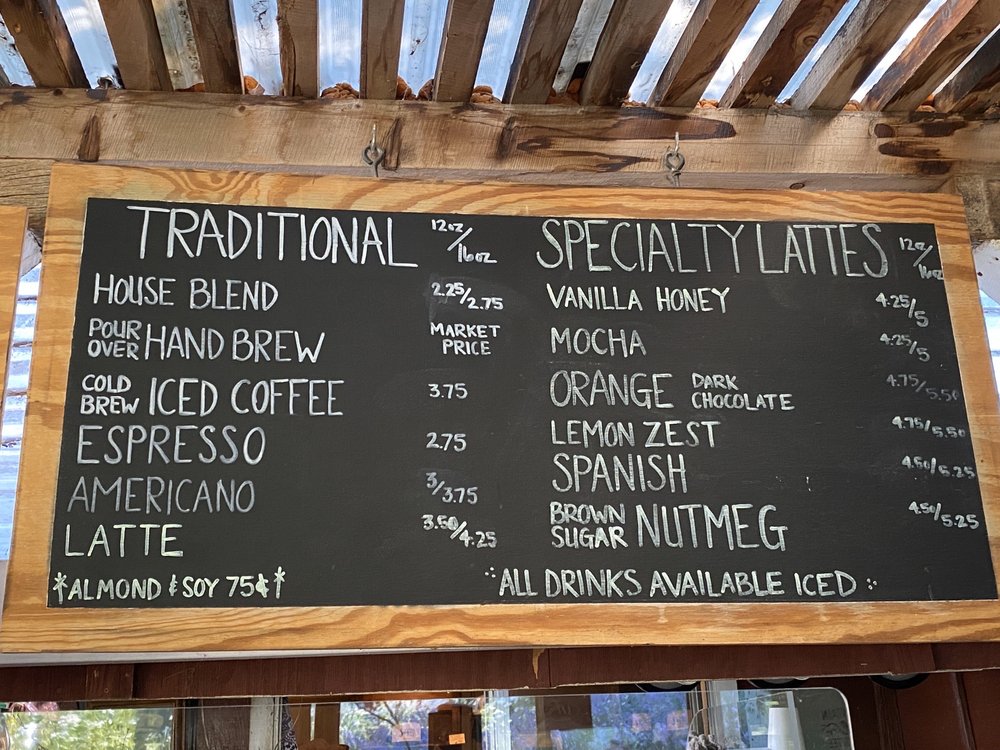 TRADITIONAL 12oz/16oz
HOUSE BLEND 2.25/2.75
POUR OVER HAND BREW MARKET PRICE
COLD BREW ICED COFFEE 3.75
ESPRESSO 2.75
AMERICANO 3/3.75
LATTE 3.50/4.25
*ALMOND & SOY 75¢*
SPECIALTY LATTES 12oz/16oz
VANILLA HONEY 4.25/5
MOCHA 4.25/5
ORANGE DARK CHOCOLATE 4.75/5.50
LEMON ZEST 4.75/5.50
SPANISH 4.50/5.25
BROWN SUGAR NUTMEG 4.50/5.25
ALL DRINKS AVAILABLE ICED